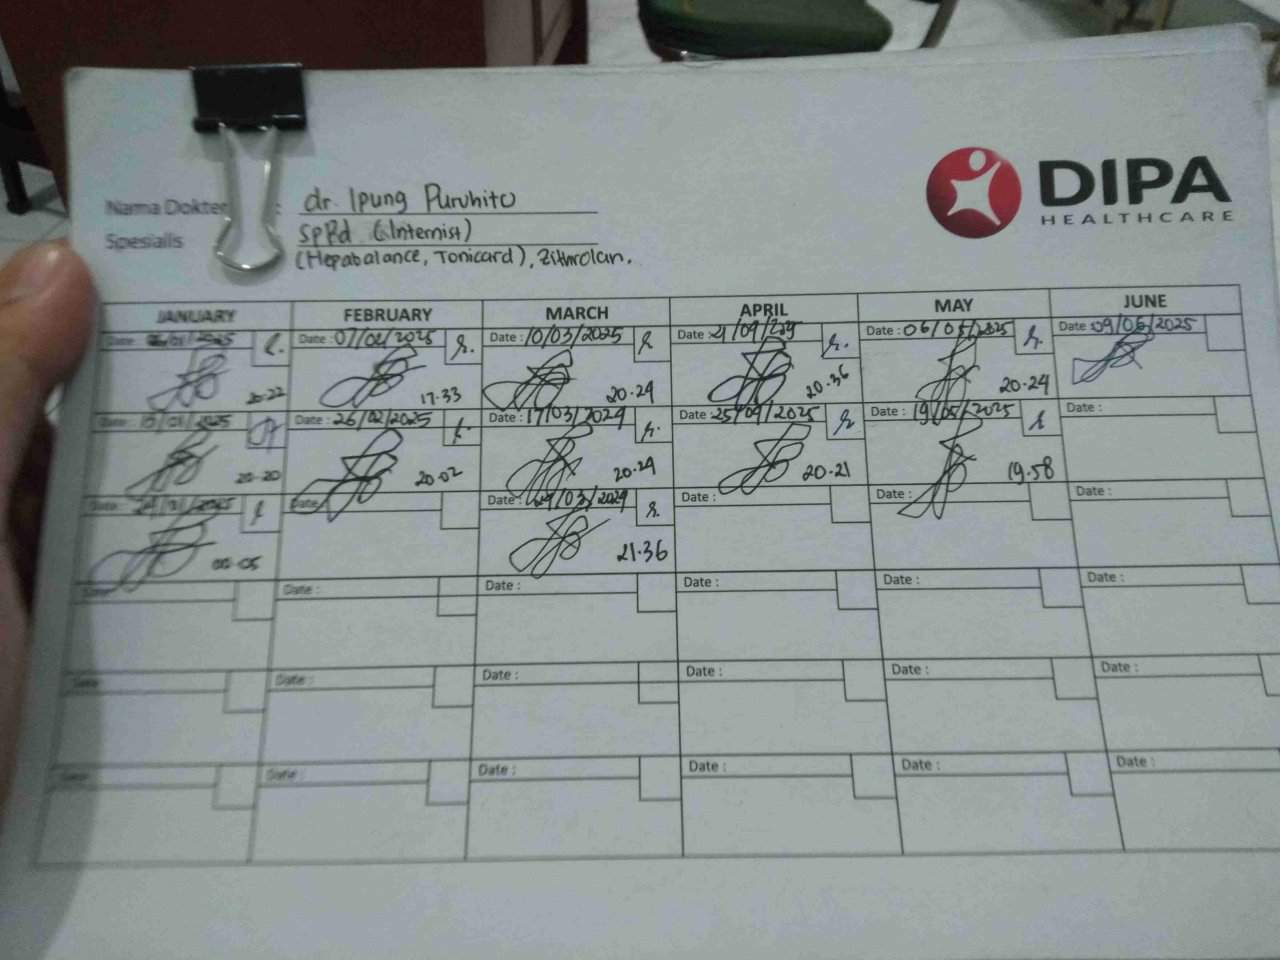 DIPA
HEALTHCARE
Nama Dokter : dr. Ipung Puruhito
Spesialis SpPd (Internist)
(Hepabalance, Tonicard), Zithrolan.
JANUARY FEBRUARY MARCH APRIL MAY JUNE
Date : /01/2025 Date : 07/02/2025 Date : 10/03/2025 Date : 21/04/ Date : 06/05/2025 Date : 09/06/2025
20.22 17.33 20.24 20.36 20.24
Date : /01/2025 Date : 26/02/2025 Date : 17/03/2024 Date : 25/04/2025 Date : 19/05/2025 Date :
20.20 20.02 20.24 20.21 19.58
Date : /2025 Date : Date : 24/03/2024 Date : Date : Date :
21.36
Date : Date : Date : Date : Date : Date :
Date : Date : Date : Date : Date : Date :
Date : Date : Date : Date : Date : Date :